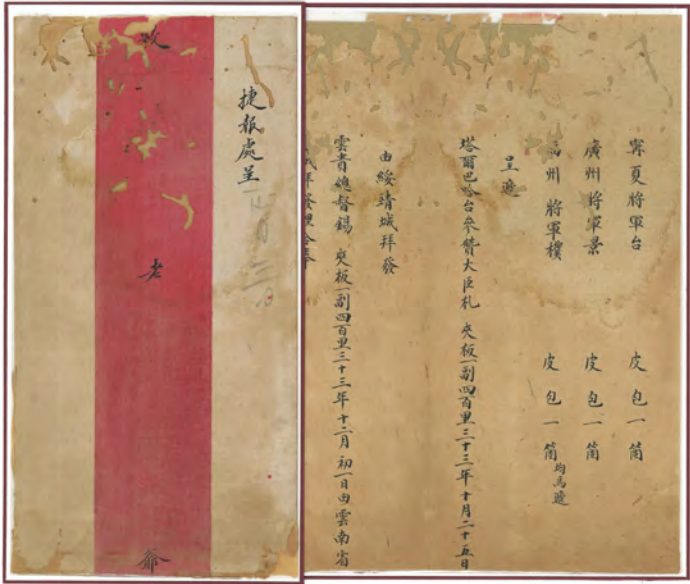 捷報處呈
改老爺
寧夏將軍台 皮包一筒
廣州將軍景 皮包一筒
福州將軍樸 皮包一筒均馬遞
呈遞
塔爾巴哈台參贊大臣札 夾板一副四百里三十三年十月二十五日
由綏靖城拜發
雲貴總督錫 夾板一副四百里三十三年十二月初一日由雲南省
城拜發理合